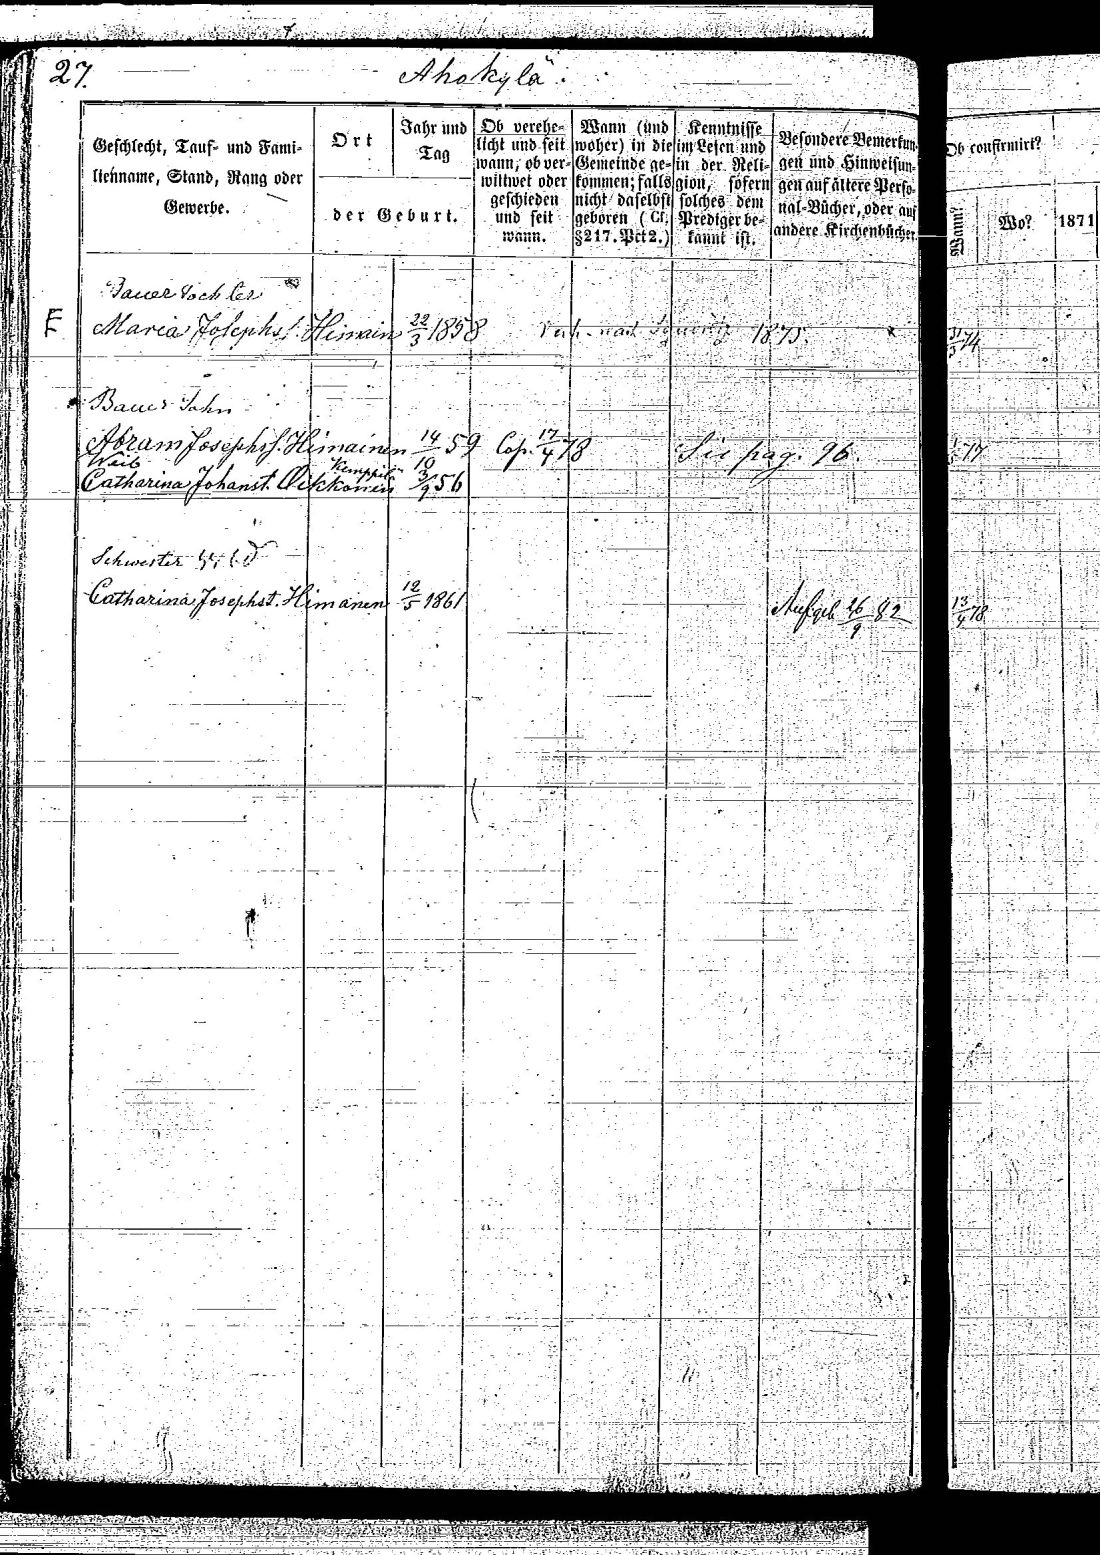 27.
Ahokylä.
Geschlecht, Tauf- und Fami-
lienname, Stand, Rang oder
Gewerbe.
Ort
Jahr und
Tag
der Geburt.
Ob verehe-
licht und seit
wann, ob ver-
wittwet oder
geschieden
und seit
wann.
Wann (und
woher) in die
Gemeinde ge-
kommen; falls
nicht daselbst
geboren (Cf.
§217. Pct 2.)
Kenntnisse
im Lesen und
in der Reli-
gion, sofern
solches dem
Prediger be-
kannt ist.
Besondere Bemerkun-
gen und Hinweisun-
gen auf ältere Perso-
nal-Bücher, oder auf
andere Kirchenbücher
Ob confirmirt?
Wann?
Wo?
1871
Bauer Tochter
Maria Josephs. Himain 22/3 1858 1875.
Bauer Sohn
Abram Josephs. Himainen 14/10 59 Cop. 17/4 78 Sie pag. 96.
Weib
Catharina Johanst. Oikkonen 3/9 56
Schwester
Catharina Josephst. Himänen 12/5 1861 Aufgeb 26/9 82 13/4 78